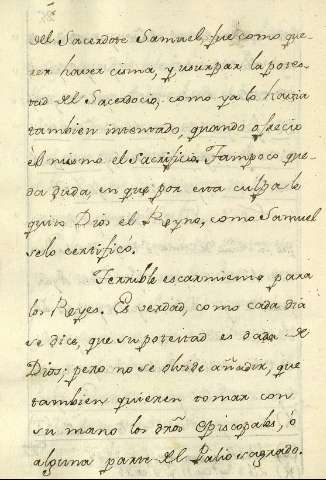 del Sacerdote Samuel, fue como que-
rer haver cisma, y usurpar la potes-
tad del Sacerdocio, como ya lo havia
tambien intentado, quando ofrecio
èl mismo el Sacrificio. Tampoco que-
da duda, en que por esta culpa le
quitò Dios el Reyno, como Samuel
se lo certificó.
Terrible escarmiento para
los Reyes. Es verdad, como cada dia
se dice, que su potestad es dada de
Dios; pero no se olvide añadir, que
tambien quieren tomar con
su mano los dros Episcopales, ó
alguna parte del Palio sagrado.